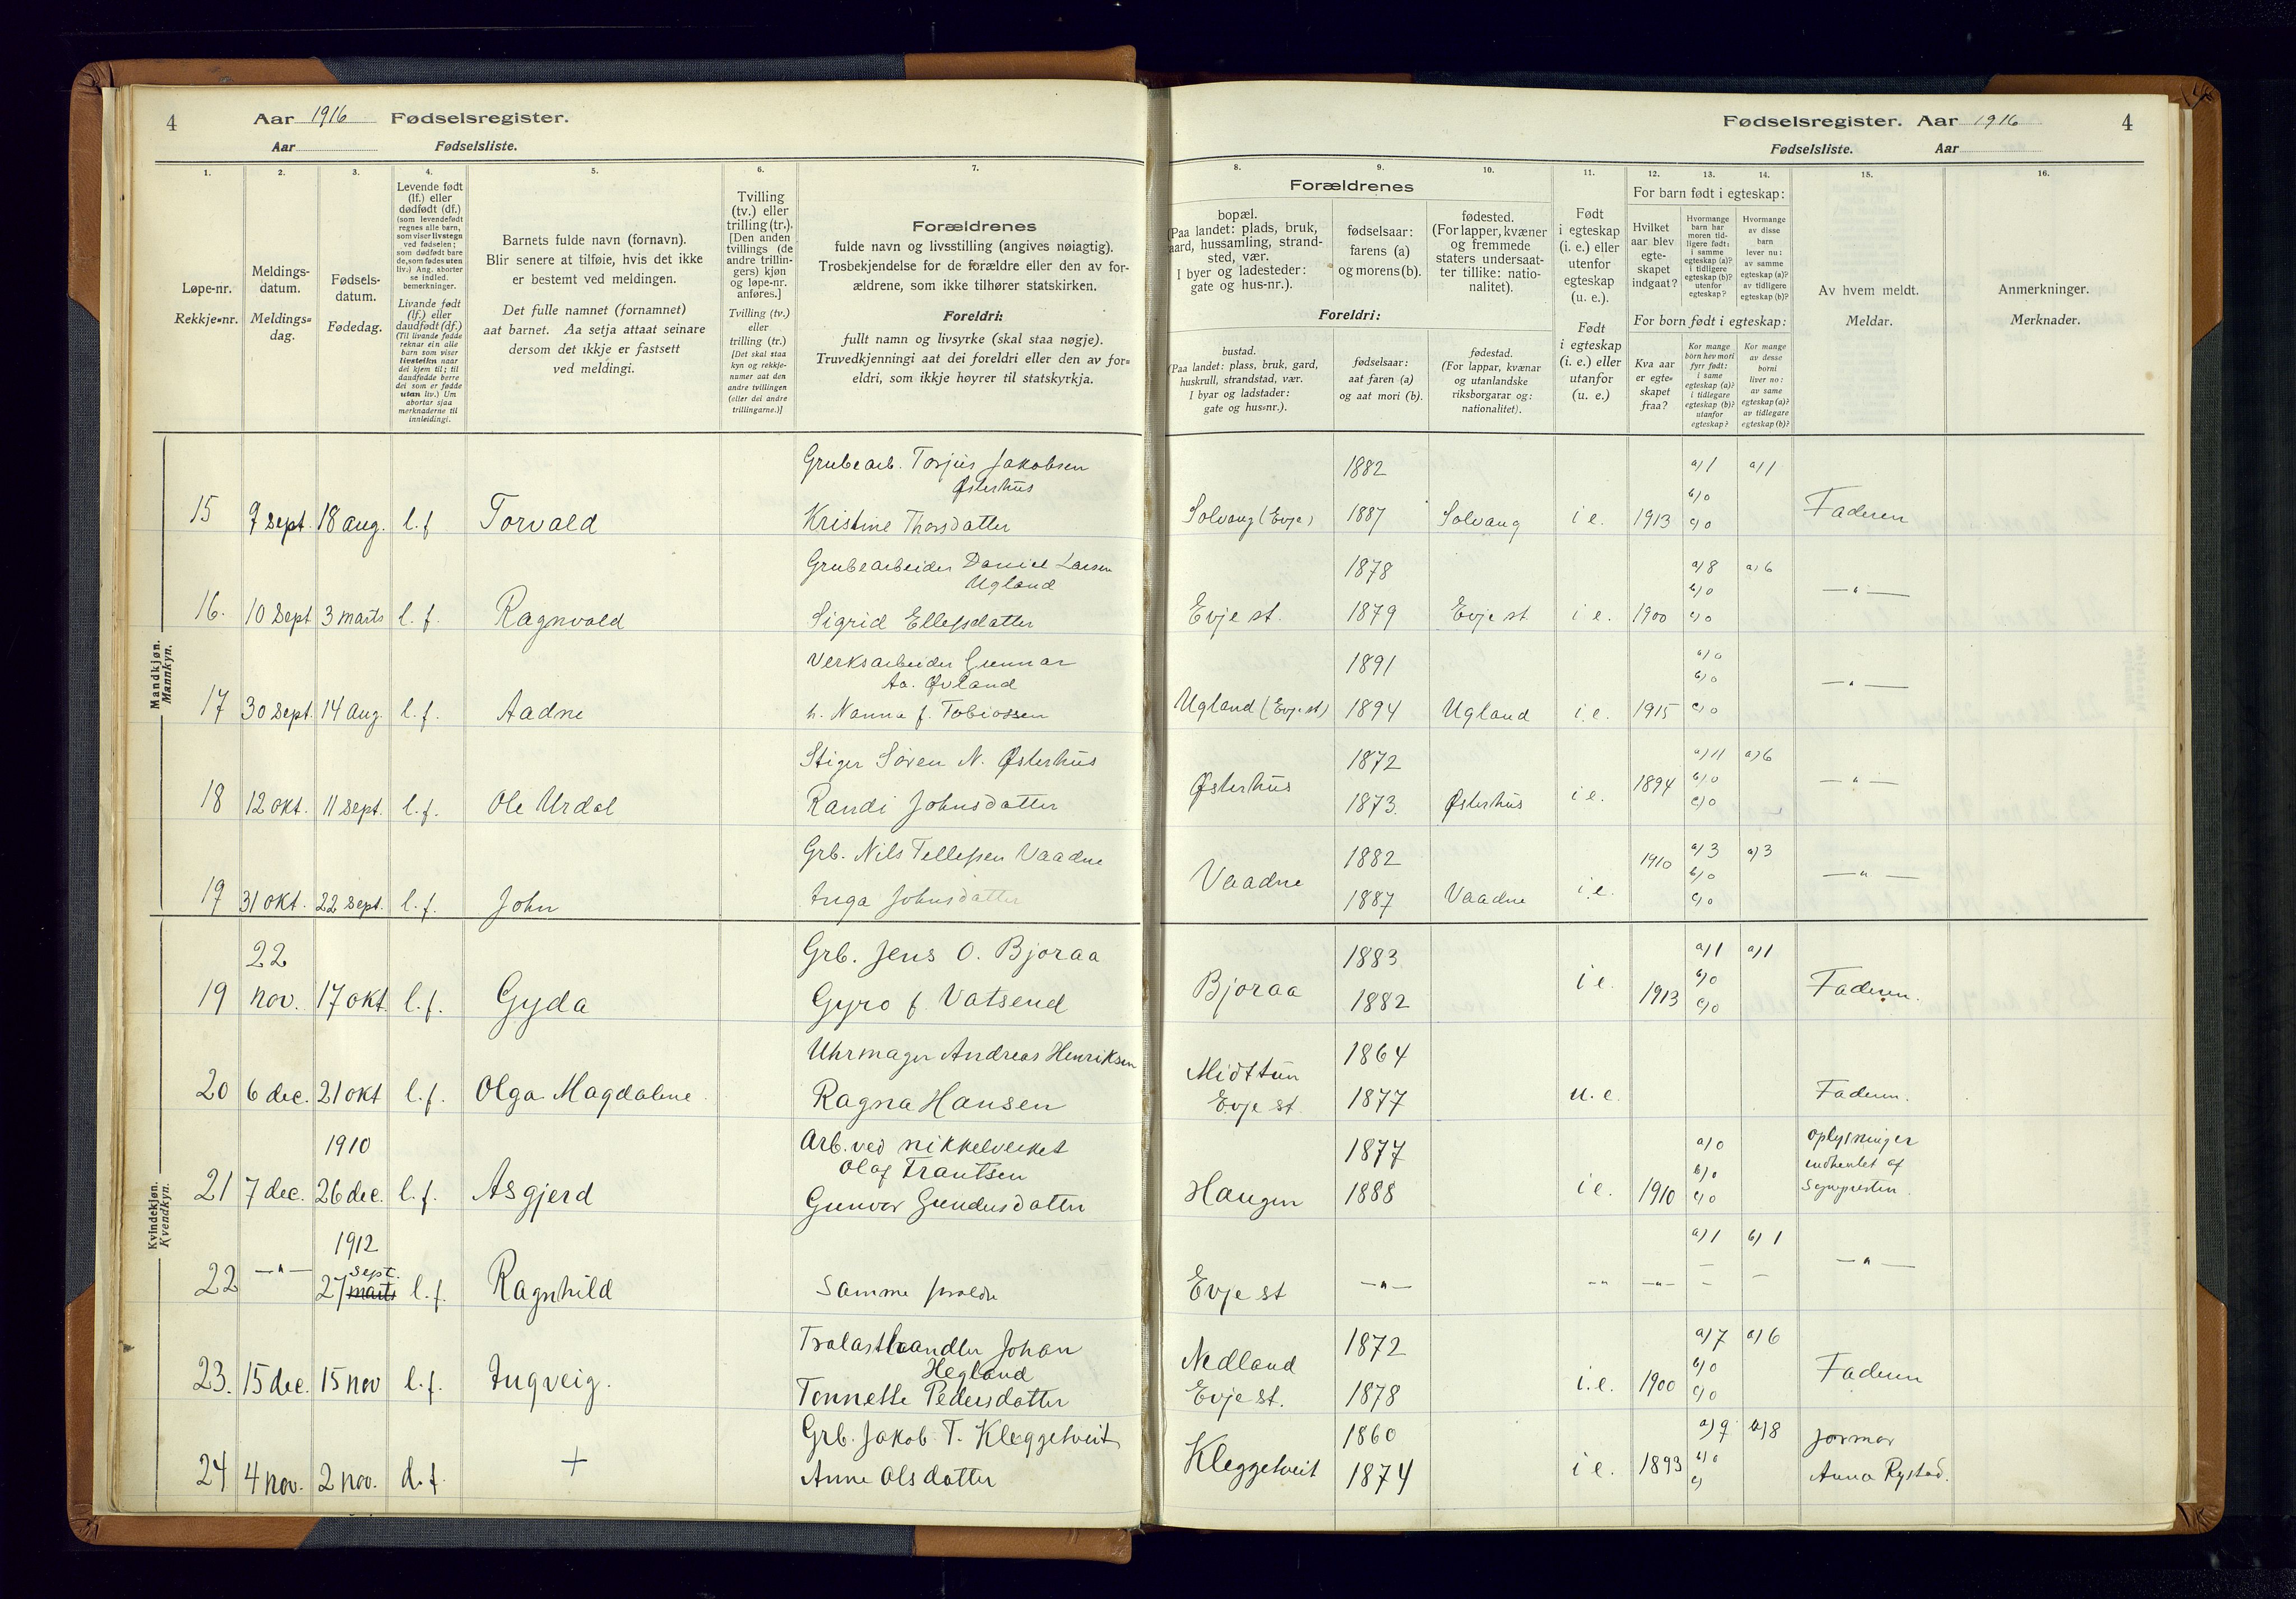 4 Aar 1916 Fødselsregister.
Aar Fødselsliste.
Fødselsregister. Aar 1916 4
Fødselsliste. Aar
1. 2. 3. 4. 5. 6. 7.
Løpe-nr.
Rekkje-nr.
Meldings-
datum.
Meldings-
dag.
Fødsels-
datum.
Fødedag.
Levende født
(lf.) eller
dødfødt (df.)
(som levendefødt
regnes alle barn,
som viser livstegn
ved fødselen;
som dødfødt bare
de, som fødes uten
liv.) Ang. aborter
se indled.
bemerkninger.
Livande født
(lf.) eller
daudfødt (df.)
(Til livande fødde
reknar ein alle
barn som viser
livsteikn naar
dei kjem til; til
daudfødde berre
dei som er fødde
utan liv.) Um
abortar sjaa
merknaderne til
innleidingi.
Barnets fulde navn (fornavn).
Blir senere at tilføie, hvis det ikke
er bestemt ved meldingen.
Det fulle namnet (fornamnet)
aat barnet. Aa setja attaat seinare
dersom det ikkje er fastsett
ved meldingi.
Tvilling
(tv.) eller
trilling (tr.).
[Den anden
tvillings (de
andre trillin-
gers) kjøn
og løpe-nr.
anføres.]
Tvilling (tv.)
eller
trilling (tr.)
[Det skal staa
kyn og rekkje-
numer aat den
andre tvillingen
(eller dei andre
trillingarne.)]
Forældrenes
fulde navn og livsstilling (angives nøiagtig).
Trosbekjendelse for de forældre eller den av for-
ældrene, som ikke tilhører statskirken.
Foreldri:
fullt namn og livsyrke (skal staa nøgje).
Truvedkjenningi aat dei foreldri eller den av for-
eldri, som ikkje høyrer til statskyrkja.
8. 9. 10. 11. 12. 13. 14. 15. 16.
Forældrenes
bopæl.
(Paa landet: plads, bruk,
gaard, hussamling, strand-
sted, vær.
I byer og ladesteder:
gate og hus-nr.).
fødselsaar:
farens (a)
og morens (b).
fødested.
(For lapper, kvæner
og fremmede
staters undersaat-
ter tillike: natio-
nalitet).
Foreldri:
bustad.
(Paa landet: plass, bruk, gard,
huskrull, strandstad, vær.
I byar og ladstader:
gate og hus-nr.).
fødselsaar:
aat faren (a)
og aat mori (b).
fødestad.
(For lappar, kvænar
og utanlandske
riksborgarar og:
nationalitet).
Født
i egteskap
(i. e.) eller
utenfor
egteskap
(u. e.).
Født
i egteskap
(i. e.) eller
utanfor
(u. e.)
For barn født i egteskap:
Hvilket
aar blev
egte-
skapet
indgaat?
Hvormange
barn har
moren tid-
ligere født:
i samme
egteskap (a)?
i tidligere
egteskap (b)?
utenfor
egteskap?
Hvormange
av disse
barn
lever nu:
av samme
egteskap (a)?
av tidligere
egteskap (b)?
For born født i egteskap:
Kva aar
er egte-
skapet
fraa?
Kor mange
born hev mori
fyrr født:
i same
egteskap (a)?
i tidlegare
egteskap (b)?
utanfor
egteskap?
Kor mange
av desse
borni
liver no:
av same
egteskap (a)?
av tidlegare
egteskap (b)?
Av hvem meldt.
Meldar.
Anmerkninger.
Merknader.
Mandkjøn.
Mannkyn.
Grubearb. Torjus Jakobsen 1882 a) 1 a) 1
Østerhus b) 0
15 9 sept. 18 aug. l. f Torvald Kristine Thorsdatter Solvang (Evje) 1887 Solvang i e. 1913 c) 0 Faderen
Grubearbeider Daniel Larsen 1878 a) 8 a) 6
Ugland b) 0
16. 10 sept 3 marts l. f. Ragnvald Sigrid Ellefsdatter Evje st. 1879 Evje st i e. 1900 c) 0 — " —
Verksarbeider Gunnar 1891 a) 0
Aa. Øvland b) 0
17 30 sept. 14 aug. l. f. Aadne h. Nanna f. Tobiassen Ugland (Evje st) 1894 Ugland i. e. 1915 c) 0 — " —
Stiger Søren N. Østerhus 1872 a) 11 a) 6
18 12 okt. 11 sept. l. f. Ole Urdal Randi Johnsdatter Østerhus 1873. Østerhus i e. 1894 b) 0 c) 0 — " —
Grb. Nils Tellefsen Vaadne 1882 1910 a) 3 a) 3
19 31 okt. 22 sept. l. f. John Inga Johnsdatter Vaadne 1887 Vaadne i e. b) 0 c) 0 — " —
Kvindekjøn.
Kvendkyn.
22 Grb. Jens O. Bjoraa 1883 a) 1 a) 1
19 nov. 17 okt l. f. Gyda Gyro f. Vatsend Bjoraa 1882 i e. 1913 b) 0 c) 0 Faderen.
Uhrmager Andreas Henriksen Midttun 1864
20 6 dec. 21 okt l. f. Olga Magdalene Ragna Hansen Evje st. 1877 u. e. Faderen.
1910 Arb. ved nikkelverket 1877 a) 0 oplysninger
Olaf Frantsen b) 0 indhentet af
21 7 dec. 26 dec. l. f. Asgjerd Gunvor Gundersdatter Haugen 1888 i e. 1910 c) 0 Sognepresten.
1912 a) 1 b) 1
sept.
22 — " — 27 marts l. f. Ragnhild Samme foreldre Evje st — " — — " — — " — — " —
Trælasthandler Johan Nedland 1872 a) 7 a) 6
Hegland b) 0
23. 15 dec. 15 nov l. f. Ingveig. Tonnette Pedersdatter Evje st. 1878 i. e. 1900 c) 0 Faderen
Grb. Jakob T. Kleggetveit 1860 a) 9 a) 8 jormor
24 4 nov. 2 nov. d. f. + Anne Olsdatter Kleggetveit 1874 i e. 1893 b) 0 c) Anna Rystad.